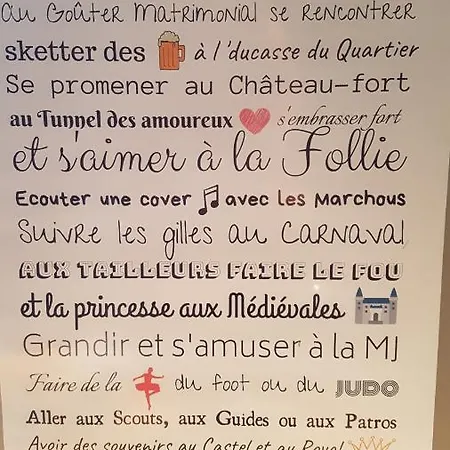 au Goûter Matrimonial se rencontrer
sketter des à l'ducasse du Quartier
Se promener au Château-fort
au Tunnel des amoureux s'embrasser fort
et s'aimer à la Follie
Ecouter une cover avec les Marchous
Suivre les gilles au Carnaval
AUX TAILLEURS FAIRE LE FOU
et la princesse aux Médiévales
Grandir et s'amuser à la MJ
Faire de la du foot ou du JUDO
Aller aux Scouts, aux Guides ou aux Patros
Avoir des souvenirs au Castel et au Royal